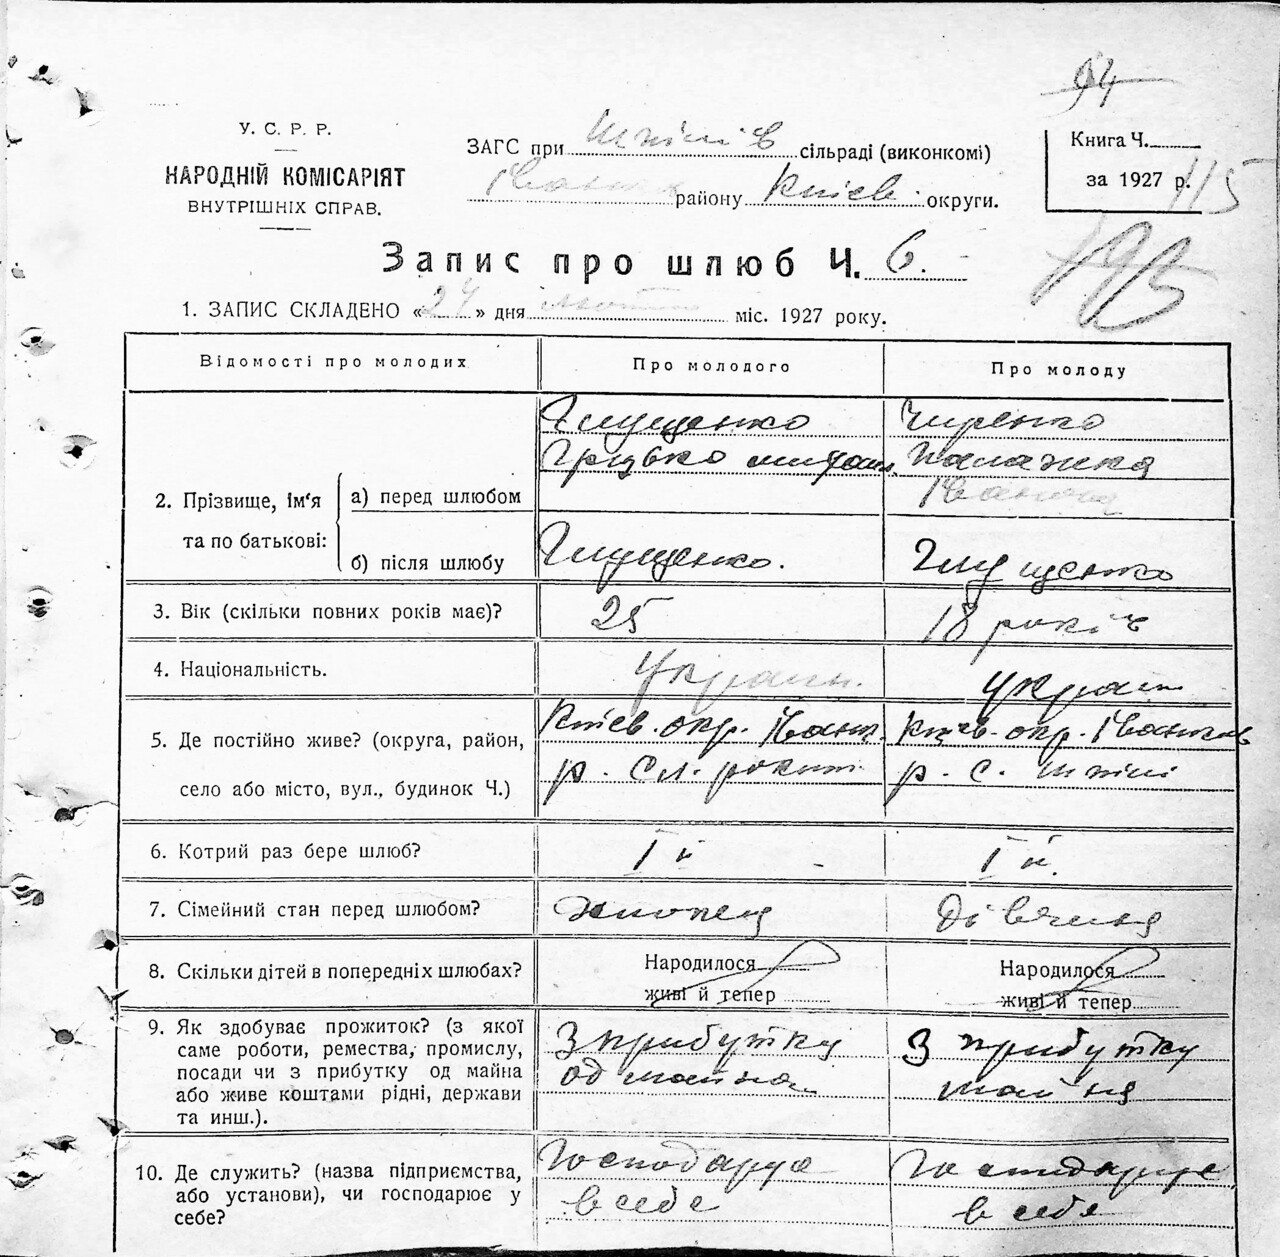 94
У. С. Р. Р.
НАРОДНІЙ КОМІСАРІЯТ
ВНУТРІШНІХ СПРАВ.
ЗАГС при Шпілів сільраді (виконкомі)
Іванк району Київ округи.
Книга Ч.
за 1927 р. 115
195
Запис про шлюб Ч. 6.
1. ЗАПИС СКЛАДЕНО « 24 » дня лютого міс. 1927 року.
Відомості про молодих Про молодого Про молоду
2. Прізвище, ім'я та по батькові:
а) перед шлюбом
Глущенко
Грицько Михайл.
Чиренко
Палажка
Іванов
б) після шлюбу Глущенко. Глущенко
3. Вік (скільки повних років має)? 25 18 років
4. Національність. Україн. Україн
5. Де постійно живе? (округа, район, Київ. окр. Іванк. Київ. окр. Іванків
село або місто, вул., будинок Ч.) р. сл. рокит р. с. шпілі
6. Котрий раз бере шлюб? І й І й.
7. Сімейний стан перед шлюбом? хлопец дівчина
8. Скільки дітей в попередніх шлюбах? Народилося Народилося
живі й тепер живі й тепер
9. Як здобуває прожиток? (з якої
саме роботи, ремества, промислу,
посади чи з прибутку од майна
або живе коштами рідні, держави
та инш.).
З прибутку
од майна
З прибутку
майна
10. Де служить? (назва підприємства,
або установи), чи господарює у
себе?
Господарує
в себе
Господарує
в себе